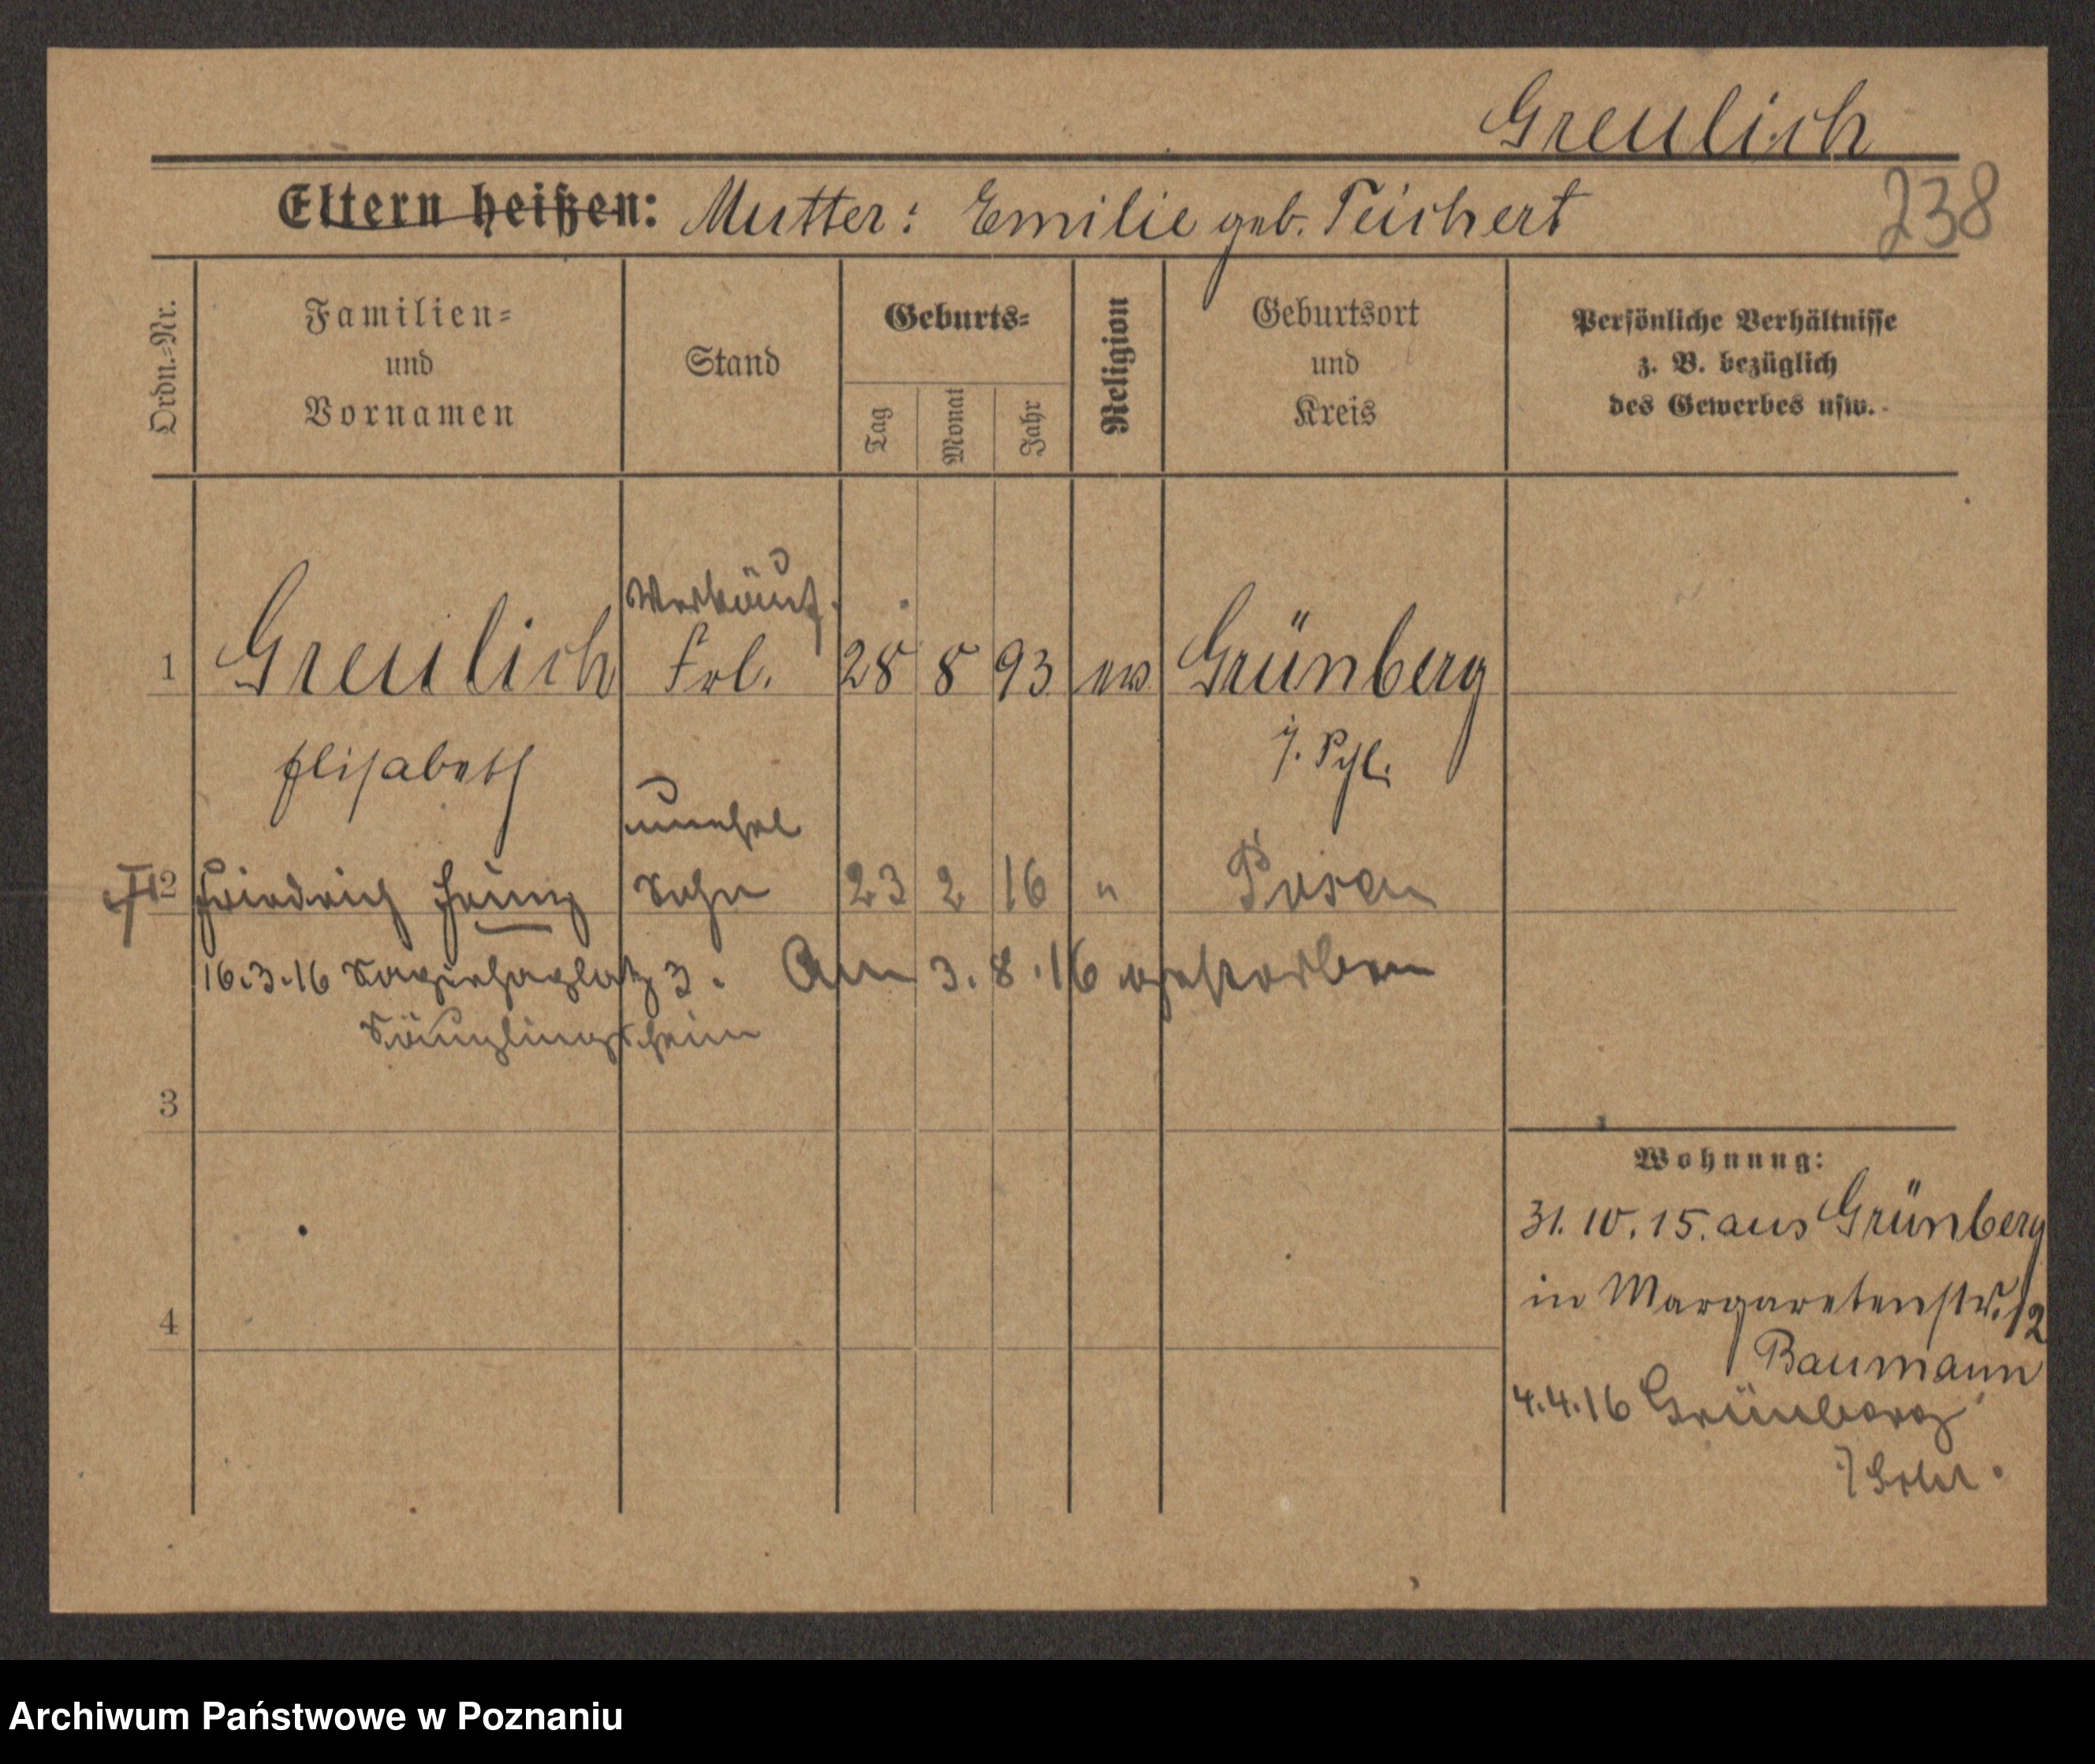 Greulich
Eltern heißen: Mutter: Emilie geb. Teichert
238
Ordn.-Nr.
Familien-
und
Vornamen
Stand
Geburts-
Tag
Monat
Jahr
Religion
Geburtsort
und
Kreis
Persönliche Verhältnisse
z. B. bezüglich
des Gewerbes usw.
Verkäuf.
1 Greulich Frl. 28 8 93 ev. Grünberg
Elisabeth i. Schl.
unehel
2 Friedrich Heinz Sohn 23 2 16 " Posen
16.3.16 Sapiehaplatz 3. Am 3.8.16 gestorben
Säuglingsheim
3
4
Wohnung:
31.10.15. aus Grünberg
in Margaretenstr. 12
Baumann
4.4.16 Grünberg
Archiwum Państwowe w Poznaniu